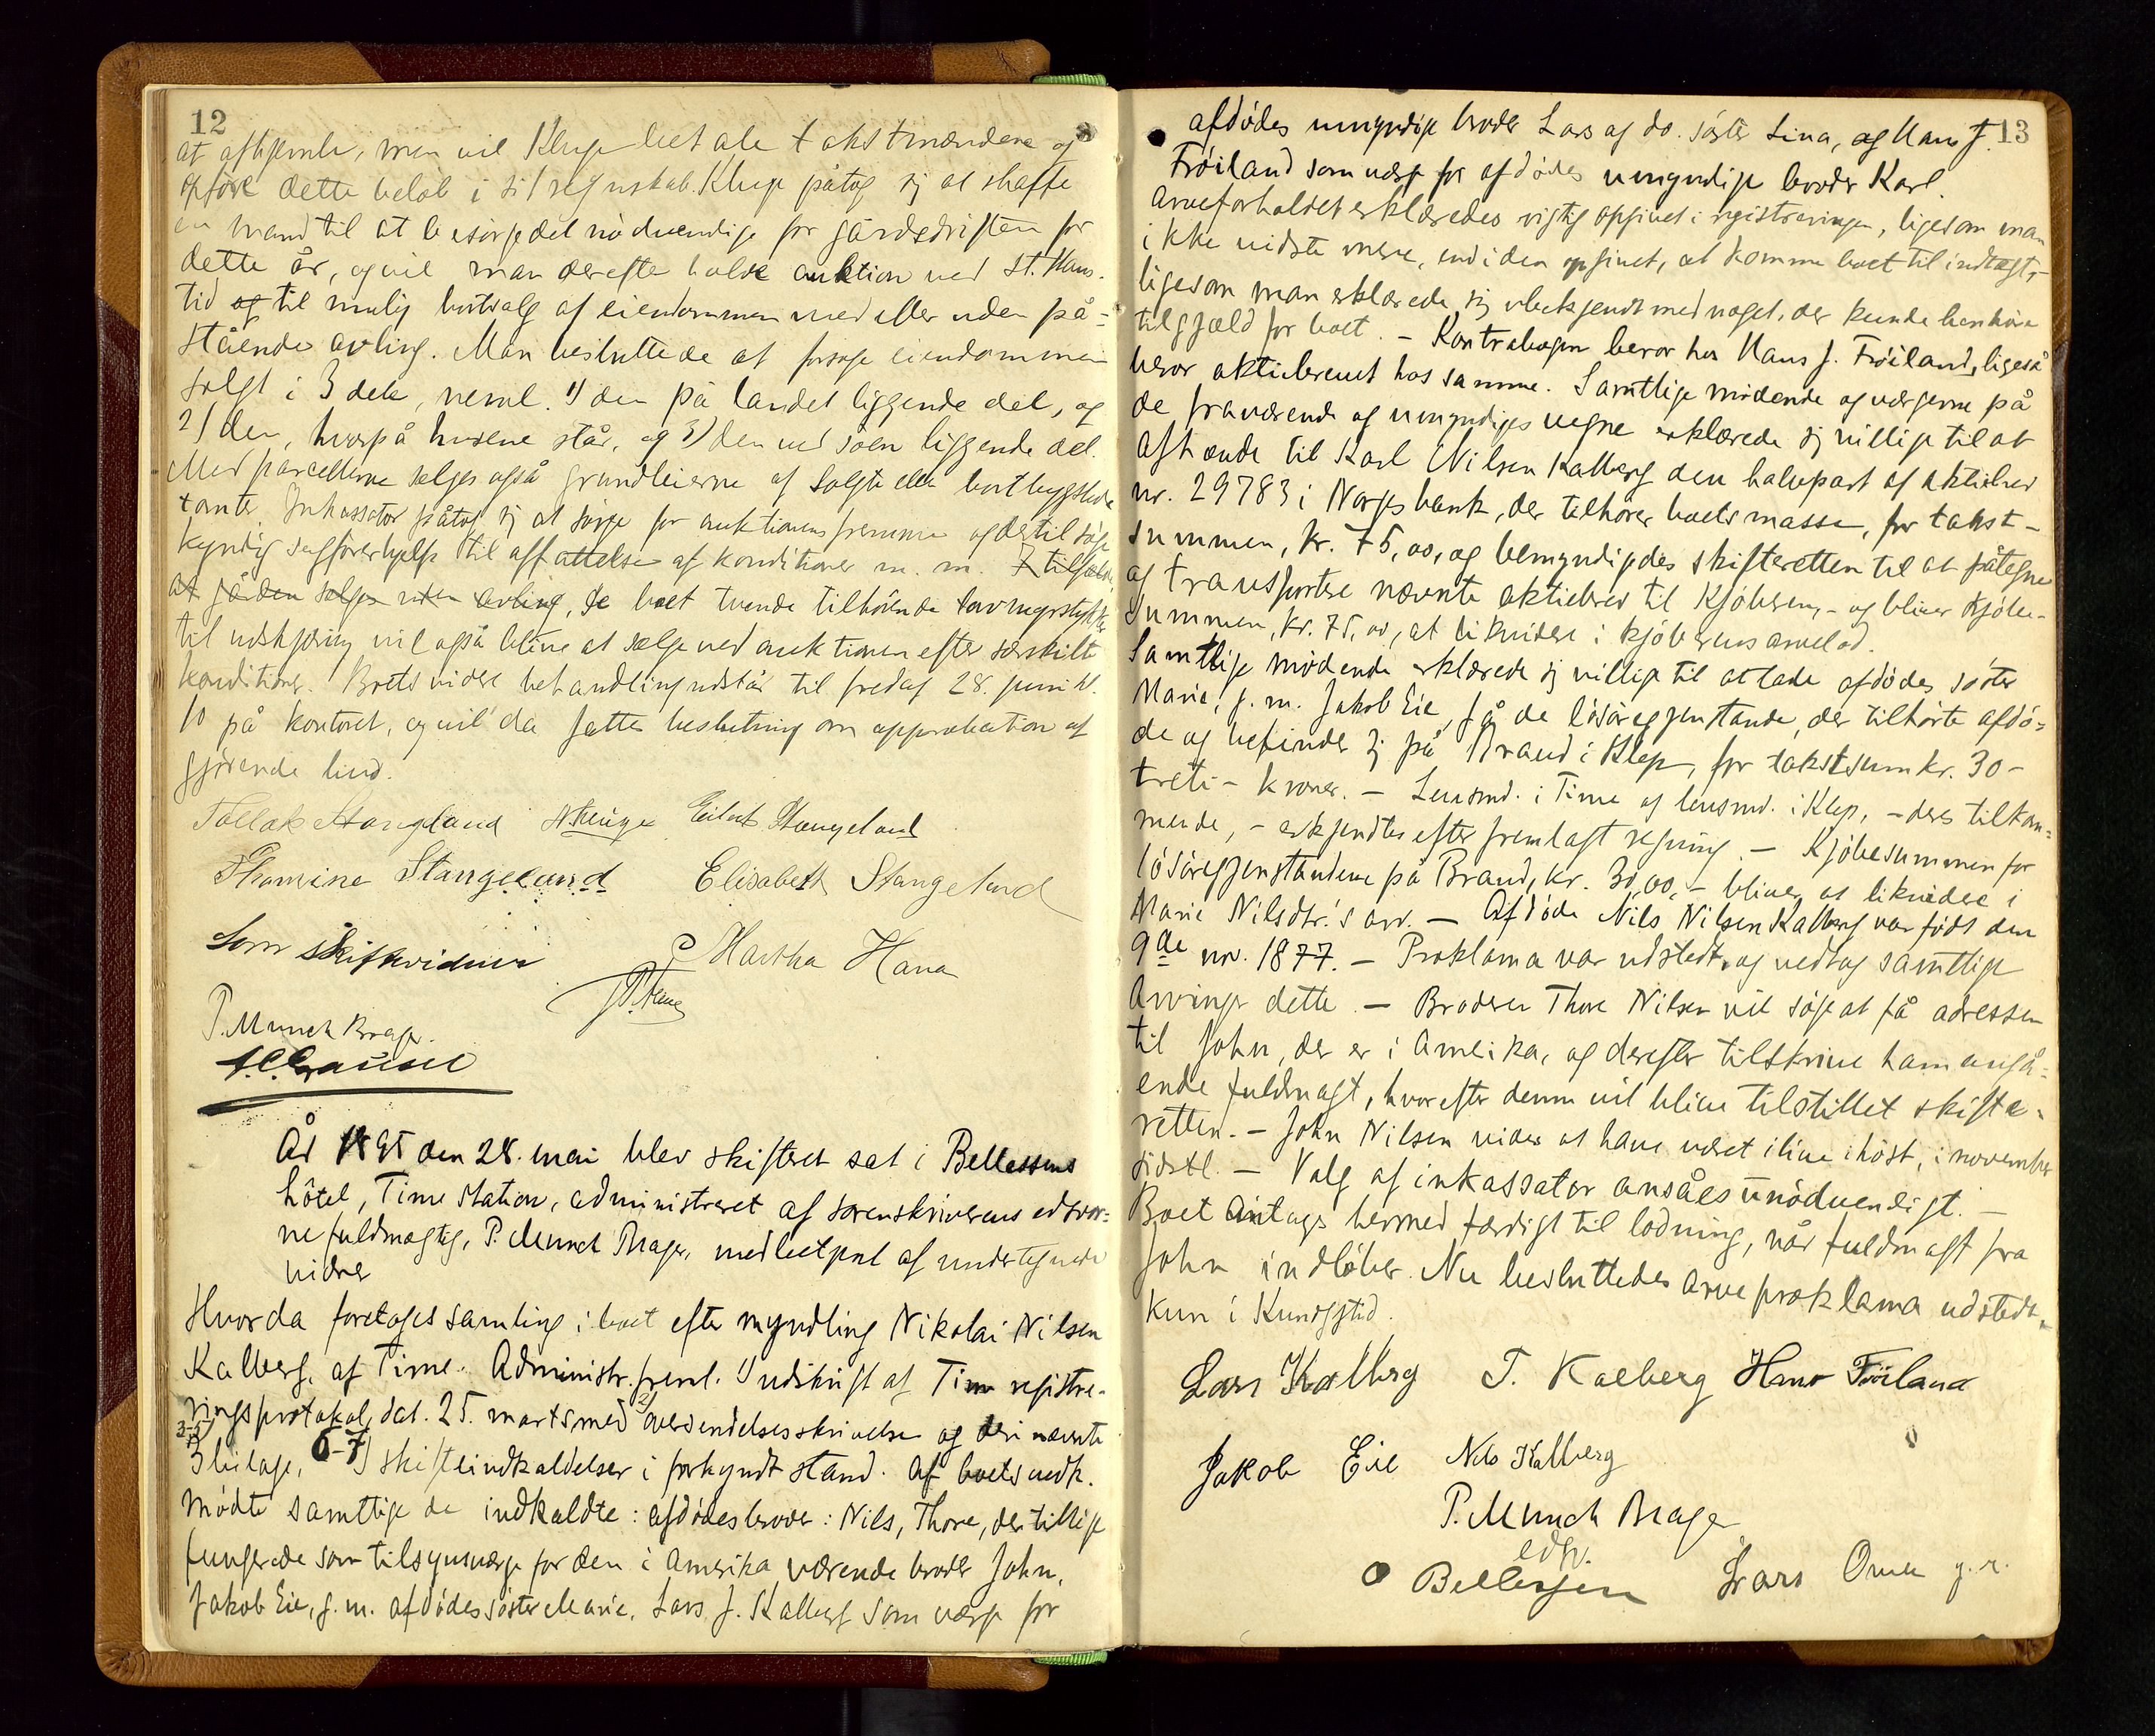 12
at afhjemle, men vil Kluge betale takstmændene og
opføre dette beløb i sit regnskab. Kluge påtog sig at skaffe
en mand til at besørge det nødvendige for gårdsdriften for
dette år, og vil man derefter holde auktion ved St. Hans-
tid og til mulig bortsalg af eiendommen med eller uden på=
stående avling. Man besluttede at forsøge eiendommen
solgt i 3 dele, neml. 1) den på landet liggende del, og
2) den, hvorpå husene står, og 3) den ved søen liggende del.
Med parcellerne selges også grundleierne af solgte eller bortbygslede
tomter. Inkassator påtog sig at sørge for auktionens fremme og dertil søge
kyndig sagførerhjelp til affattelse af konditioner m. m. I tilfælde
at gården selges uten avling, De boet tvende tilhørende
til udskjæring vil også blive at selge ved auktionen efter særskilte
konditioner. Boets videre behandling udstår til fredag 28. juni kl.
10 på kontoret, og vil da fattes beslutning om approbation af
gjørende bud.
Tollak Stangeland Kluge Eilert Stangeland
Thomine Stangeland Elisabeth Stangeland
Som skiftevidner Martha Hana
P. Munch Brager.
År 1895 den 28. mai blev skifteret sat i Bellesens
hôtel, Time Station, administreret af sorenskriverens edsvor=
ne fuldmægtig, P. Munch Brager, med betjent af undertegnede
vidner
Hvorda foretoges samling i boet efter myndling Nikolai Nilsen
Kalberg, af Time. Administr. freml. 1) udskrift af Time registre-
ringsprotokol, dat. 25. marts med 2) oversendelsesskrivelse og deri nævnte
3-5)
3 bilage, 6-7) skifteindkaldelser i forkyndt stand. Af boets vedk.
mødte samtlige de indkaldte: afdødes brødre: Nils, Thore, der tillige
fungerede som tilsynsværge for den i Amerika værende broder John,
Jakob Eie, g. m. afdødes søster Marie, Lars J. Kalberg som værge for
13
afdødes umyndige broder Lars og do. søster Lina, og Hans J.
Frøiland som værge for afdødes umyndige broder Karl.
Arveforholdet erklæredes rigtig opgivet i registreringen, ligesom man
ikke vidste mere, end i den opgivet, at komme boet til indtægt,-
ligesom man erklærede sig ubekjendt med noget, der kunde henhøre
til gjæld for boet. - Kontrabogen beror hos Hans J. Frøiland, ligeså
beror aktiebrevet hos samme. Samtlige mødende og værgerne på
de fraværende og umyndiges vegne erklærede sig villige til at
afhænde til Karl Nilsen Kalberg den halvpart af aktiebrev
nr. 29783 i Norges bank, der tilhører boets masse, for takst-
summen, kr. 75,00, og bemyndigedes skifteretten til at påtegne
og transportere nævnte aktiebrev til kjøberen, - og bliver kjøbe-
summen, kr. 75,00, at likvidere i kjøberens arvelod.
Samtlige mødende erklærede sig villige til at lade afdødes søster
Marie, g. m. Jakob Eie, få de løsøregjenstande, der tilhørte afdø=
de og befinder sig på Braud i Klep, for takstsum kr. 30-
treti- kroner. - Lensmd. i Time og lensmd. i Klep, - deres tilkom=
mende, - erkjendtes efter fremlagt regning. - Kjøbesummen for
løsøregjenstandene på Braud, kr. 30,00, - bliver at likvidere i
Marie Nilsdtr.'s arv. - Afdøde Nils Nilsen Kalberg var født den
9de nov. 1877. - Proklama var udstedt, og vedtog samtlige
Arvinge dette. - Broderen Thore Nilsen vil søge at få adressen
til John, der er i Amerika, og derefter tilskrive ham angå=
ende fuldmagt, hvorefter denne vil blive tilstillet skifte-
retten. - John Nilsen vides at have været ilive ihøst, i november
sidstl. - Valg af inkassator ansåes unødvendigt. -
Boet antages hermed færdigt til lodning, når fuldmagt fra
John indløber. Nu besluttedes arve proklama udstedt,
kun i Kundgstid.
Lars Kalberg T. Kalberg Hans Frøiland
Jakob Eie Nils Kalberg
P. Munch Brager
edsv.
O Bellesen Lars Omen